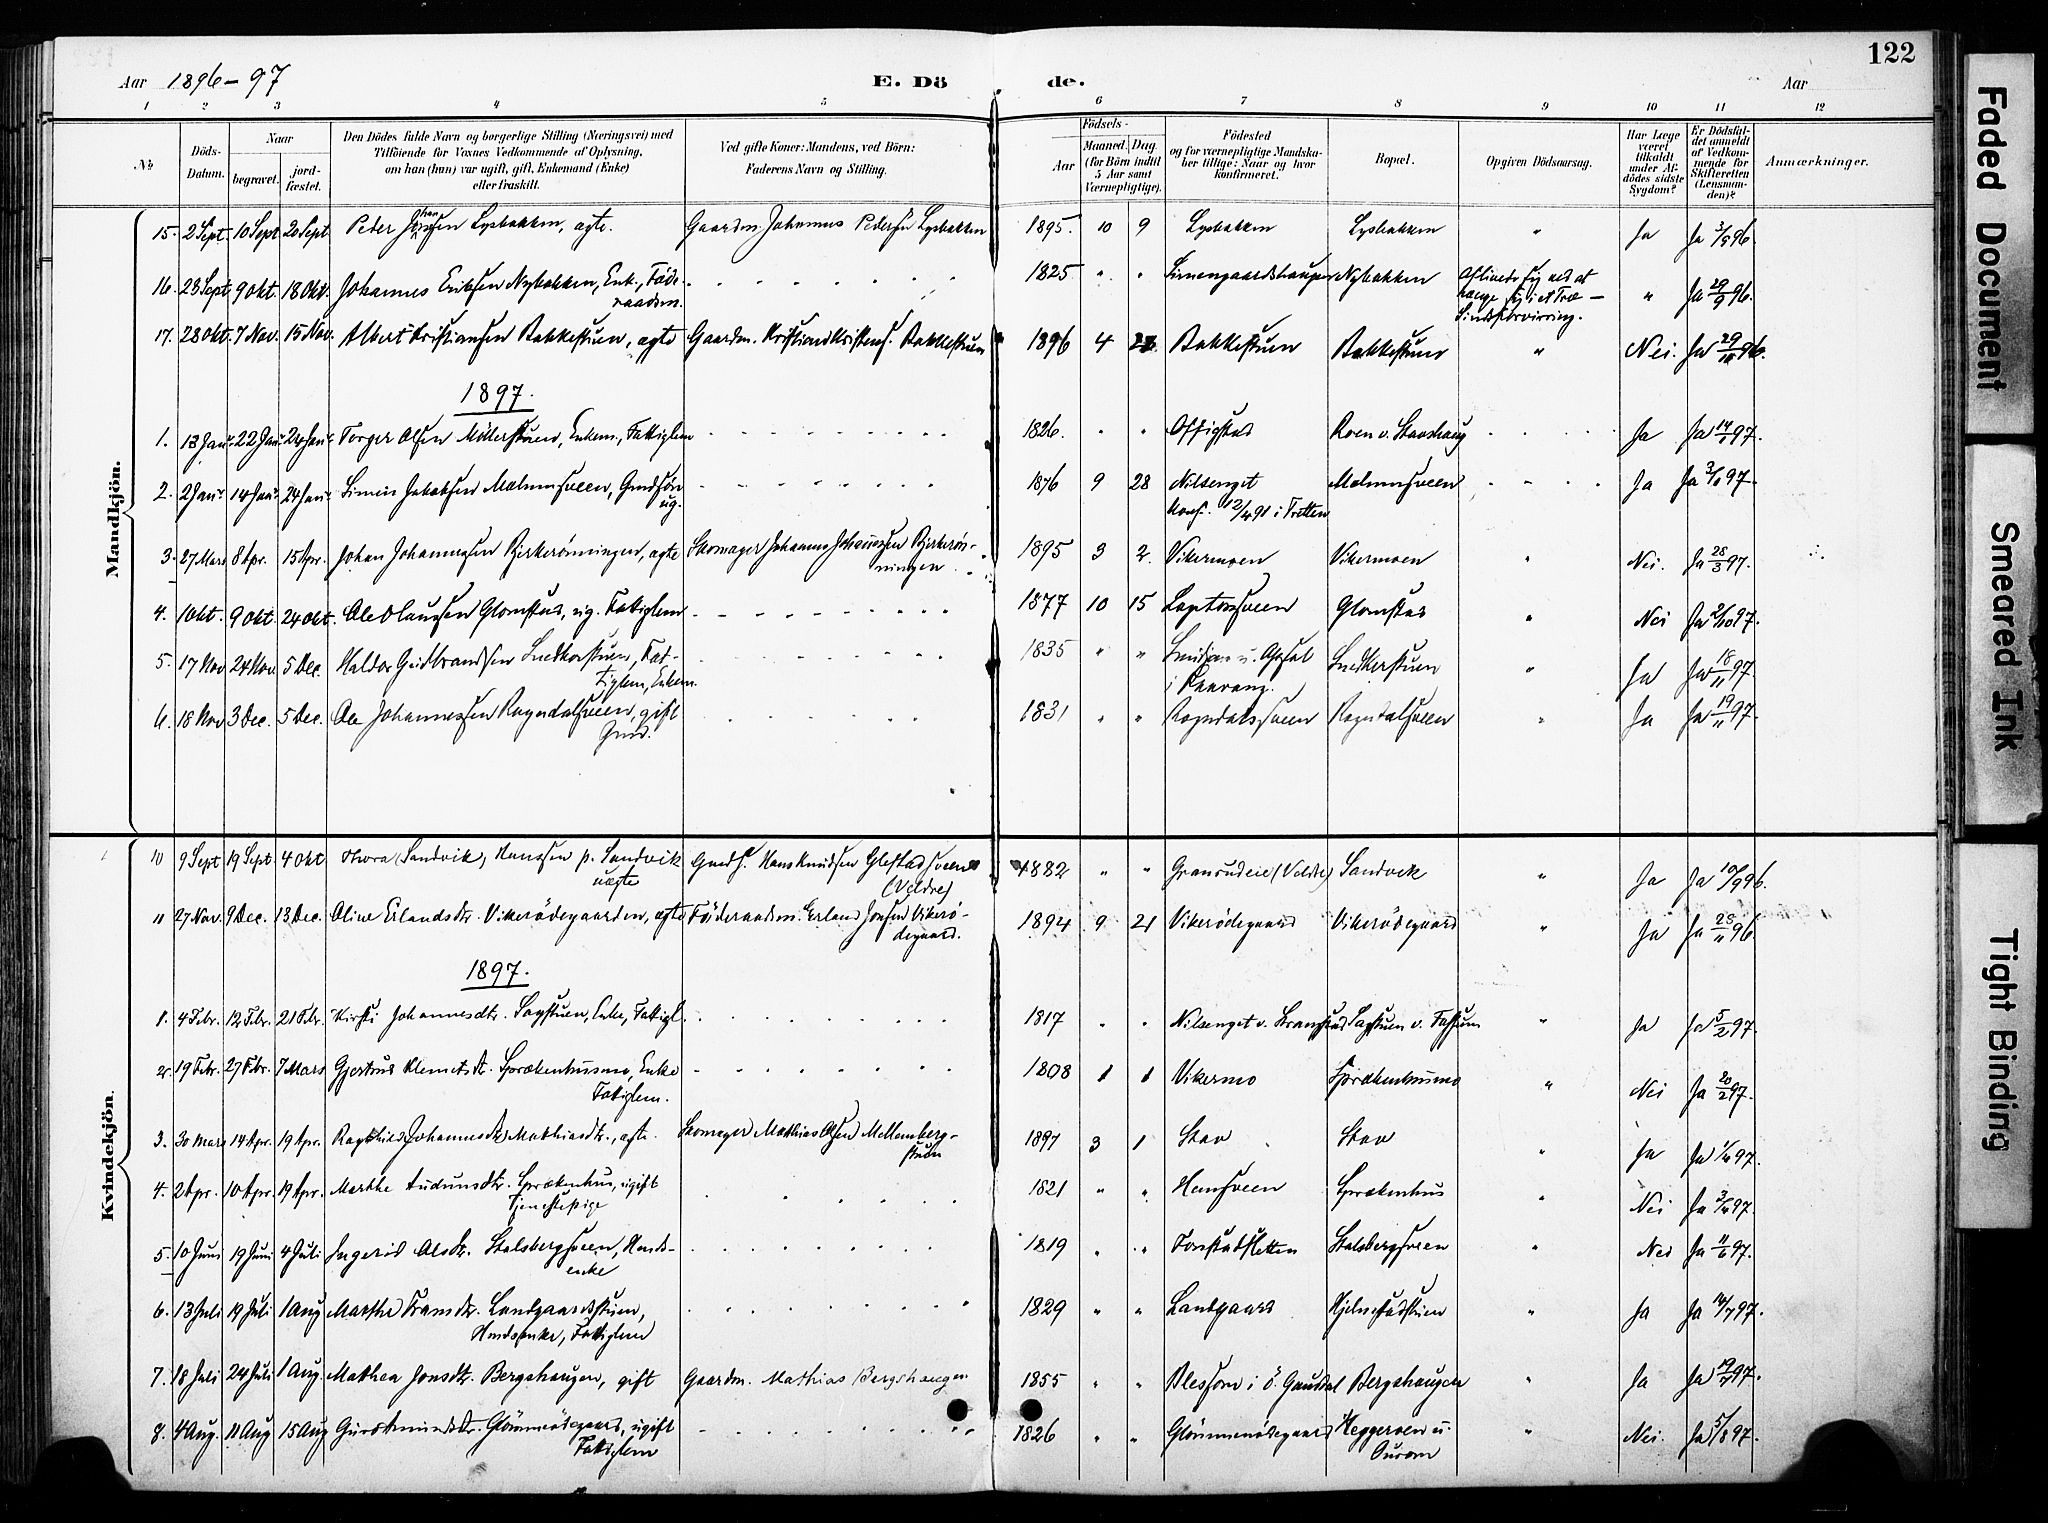 122
Aar 1896-97 E. Dö de. Aar
1 2 3 4 5 6 7 8 9 10 11 12
No Döds-Datum. Naar begravet. jordfæstet. Den Dödes fulde Navn og borgerlige Stilling (Næringsvei) med Tilföiende for Voxnes Vedkommende af Oplysning, om han (hun) var ugift, gift, Enkemand (Enke) eller fraskilt. Ved gifte Koner: Mandens, ved Börn: Faderens Navn og Stilling. Födsels- Aar Maaned. Dag. (for Börn indtil 5 Aar samt Værnepligtige). Födested og for værnepligtige Mandskaber tillige: Naar og hvor konfirmeret. Bopæl. Opgiven Dödsaarsag. Har Læge været tilkaldt under Afdödes sidste Sygdom? Er Dödsfaldet anmeldt af Vedkommende for Skifteretten (Lensmanden)? Anmærkninger.
Mandkjön.
15. 2 Sept. 10 Sept 20 Sept Peder Johansen Lysbakken, ægte. Gaardm. Johannes Pedersen Lysbakken 1895. 10 9 Lysbakken Lysbakken " Ja Ja 3/9 96
16. 23 Sept. 9 Okt. 18 Okt. Johannes Eriksen Nybakken, Enk., Föderaadsm. 1825 " " Nybakken Aflivede sig ved at hænge sig i et Træ - Sindsforvirring. " Ja 29/9 96.
17. 28 Okt. 7 Nov. 15 Nov. Albert Kristiansen Bakkestuen, ægte Gaardm. Kristian Kristens. Bakkestuen 1896 4 Bakkestuen Bakkestuen " Nei. Ja 96.
1897.
1. 13 Janr. 22 Janr. 24 Janr. Torger Olsen Möllerstuen, Enkem., Fattiglem 1826. " " Offigstad Roen v. Stavshaug Ja Ja 14/1 97.
2. 2 Janr. 14 Janr. 24 Janr. Simen Jakobsen Malumsveen, Grdsön ug. 1876 9 28 Nilsenget Konf. 12/4 91 i Tretten Malumsveen Ja Ja 3/1 97.
3. 27 Mars 8 Apr. 15 Apr. Johan Johannesen Birkerönningen, ægte Skomager Johannes Johannessen Birkerönningen 1895 3 2. Vikermoen Vikermoen " Nei. Ja 28/3 97.
4. 1 Okt. 9 Okt. 24 Okt. Ole Olaussen Glomstad, ug. Fattiglem 1877 10 15 Glomstad " Nei Ja 2/10 97.
5. 17 Nov 24 Nov. 5 Dec. Haldor Gudbrandsen Fattiglem, Enkem. 1835 " " i Kaavang. " Ja Ja 18/11 97.
6. 18 Nov 3 Dec. 5 Dec. Ole Johannessen Rogndalsveen, gift 1831 " " Rogndalsveen Rogndalsveen " Ja Ja 19/11 97.
Kvindekjön.
10 9 Sept 19 Sept 4 Okt Thora Sandvik, Hanssen p. Sandvik uægte Hans Knudsen Glestadsveen (Veldre) 1882 " " Granrudeie (Veldre) Sandvik " Ja Ja 10/9 96.
11 27 Nov. 9 Dec. 13 Dec. Oline Erlandsdtr. Vikerödegaarden, ægte Föderaadsm. Erland Jonsen Vikerödegaard. 1894 9 21 Vikerödegaard Vikerödegaard " Ja Ja 28/11 96.
1897.
1. 4 Febr. 12 Febr. 21 Febr. Kirsti Johannesdtr. Sagstuen, Enke, Fattigl. 1817 " " Nilsenget v. Stramstad Sagstuen v. " Ja Ja 5/2 97.
2. 19 Febr. 27 Febr. 7 Mars Gjertrud Klemetsdtr. Sprækenhusmo, Enke Fattiglem. 1808 1 1 Vikermo Sprækenhusmo " Nei Ja 20/2 97.
3. 30 Mars 14 Apr. 19 Apr. Ragnhild Johannesdtr. Mathiasdtr., ægte. Skomager Mathias Olsen Mellembergstuen 1897 3 1 Stav Stav " Ja Ja 1/4 97.
4. 2 Apr. 10 Apr. 19 Apr. Marthe Audunsdtr. Sprækenhus, ugift Tjenestepige 1821 " " Hensveen Sprækenhus " Nei Ja 3/4 97.
5. 10 Juni 19 Juni 4 Juli Ingerid Olsdtr. Stalsbergsveen, Husmdsenke 1819 " " Stalsbergsveen " Nei Ja 11/6 97.
6. 13 Juli 19 Juli 1 Aug Marthe Landgaardsstuen, Husmdsenke, Fattiglem 1829 " " Landgaard Hjelmstadstuen " Ja Ja 14/7 97.
7. 18 Juli 24 Juli 1 Aug Mathea Jonsdtr. Bergshaugen, gift Gaardm. Mathias Bergshaugen 1855 " " Blessom i Ö. Gausdal Bergshaugen " Ja Ja 19/7 97.
8. 4 Aug. 11 Aug 15 Aug Guro Glömmeödegaard, ugift Fattiglem 1826 " " Glömmeödegaard Heggeroen u. Aurom " Nei. Ja 5/8 97.
Faded Document
Smeared Ink
Tight Binding